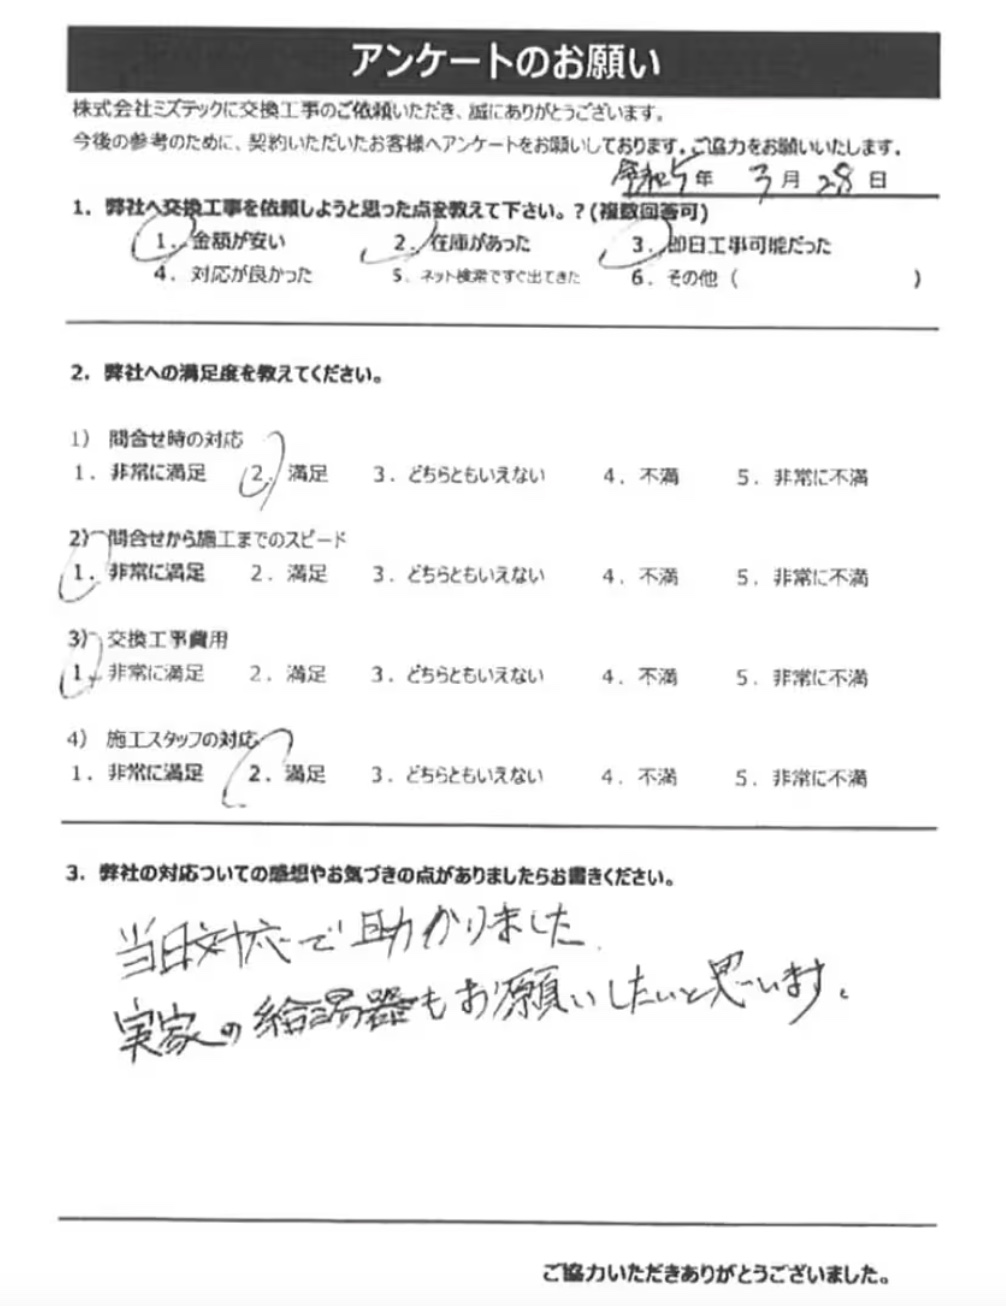 アンケートのお願い
株式会社ミズテックに交換工事のご依頼いただき、誠にありがとうございます。
今後の参考のために、契約いただいたお客様へアンケートをお願いしております。ご協力をお願いいたします。
令和5年 3月28日
1. 弊社へ交換工事を依頼しようと思った点を教えて下さい。?(複数回答可)
1. 金額が安い 2. 在庫があった 3. 即日工事可能だった
4. 対応が良かった 5. ネット検索ですぐ出てきた 6. その他( )
2. 弊社への満足度を教えてください。
1) 問合せ時の対応
1. 非常に満足 2. 満足 3. どちらともいえない 4. 不満 5. 非常に不満
2) 問合せから施工までのスピード
1. 非常に満足 2. 満足 3. どちらともいえない 4. 不満 5. 非常に不満
3) 交換工事費用
1. 非常に満足 2. 満足 3. どちらともいえない 4. 不満 5. 非常に不満
4) 施工スタッフの対応
1. 非常に満足 2. 満足 3. どちらともいえない 4. 不満 5. 非常に不満
3. 弊社の対応ついての感想やお気づきの点がありましたらお書きください。
当日対応で助かりました.
実家の給湯器もお願いしたいと思います。
ご協力いただきありがとうございました。